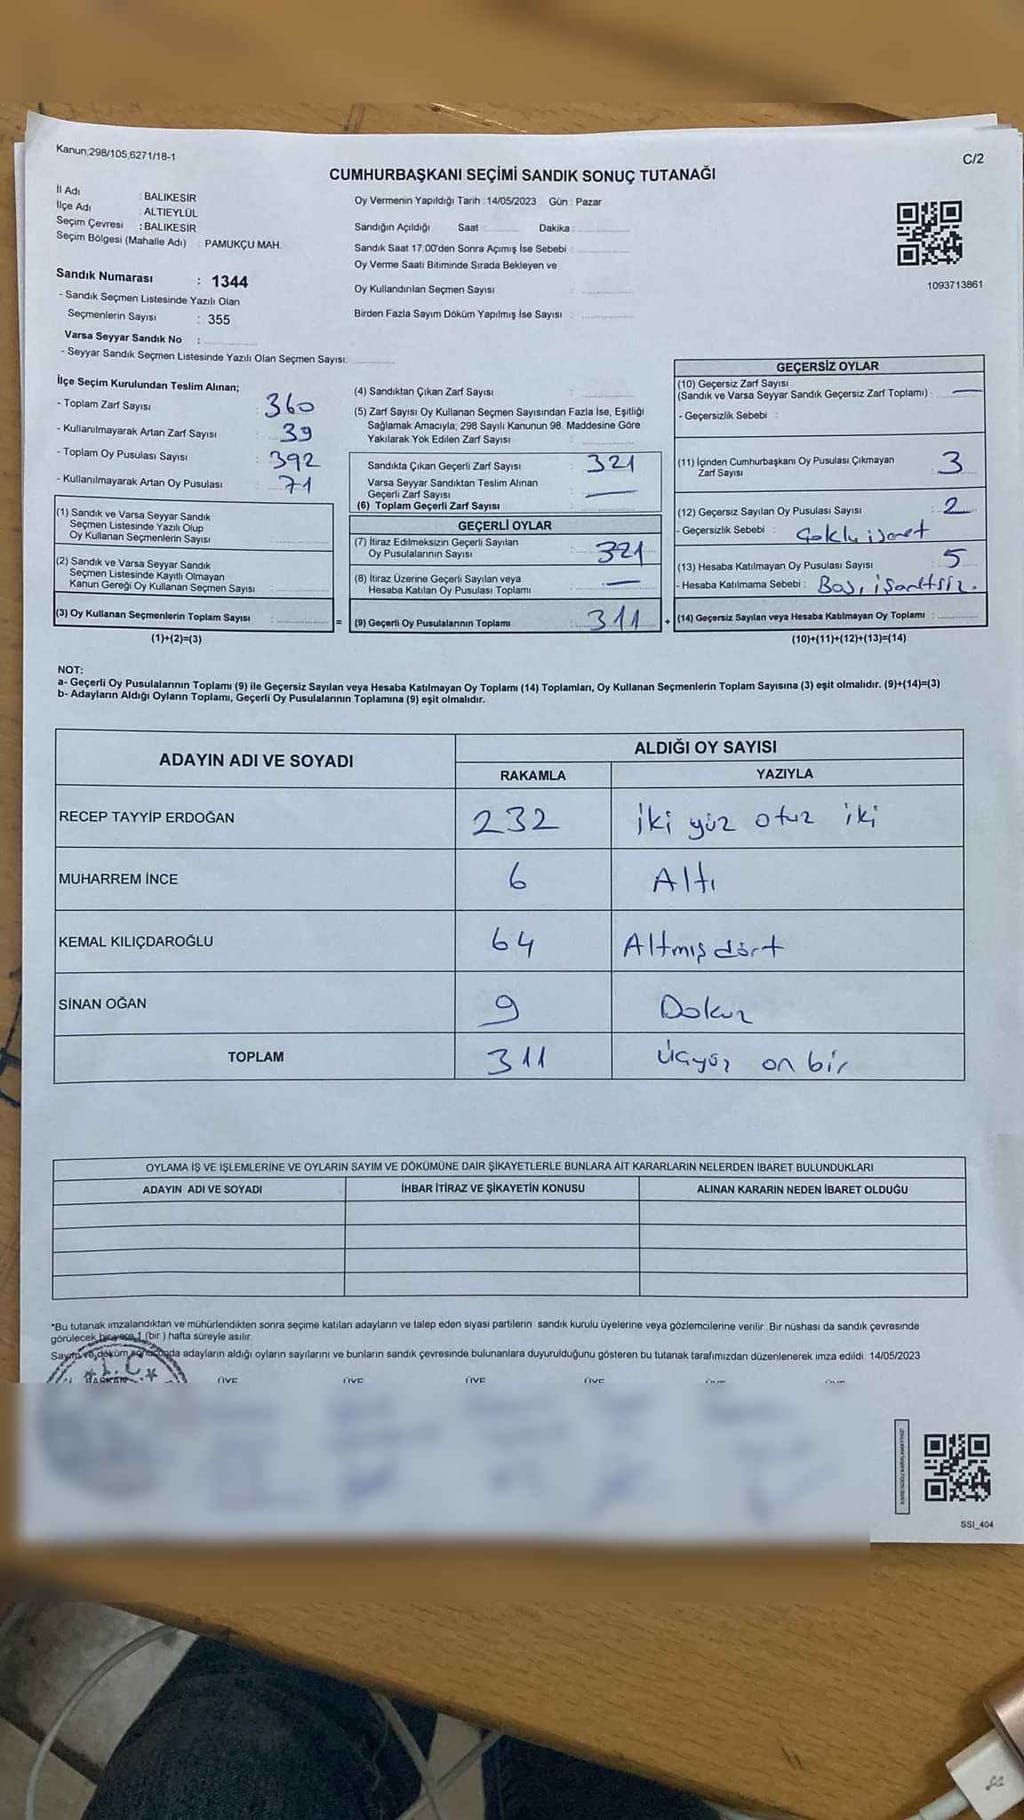 Kanun;298/105,6271/18-1
C/2
CUMHURBAŞKANI SEÇİMİ SANDIK SONUÇ TUTANAĞI
İl Adı : BALIKESİR
İlçe Adı : ALTIEYLÜL
Seçim Çevresi : BALIKESİR
Seçim Bölgesi (Mahalle Adı) : PAMUKÇU MAH.
Sandık Numarası : 1344
- Sandık Seçmen Listesinde Yazılı Olan
Seçmenlerin Sayısı : 355
Varsa Seyyar Sandık No :
- Seyyar Sandık Seçmen Listesinde Yazılı Olan Seçmen Sayısı:
Oy Vermenin Yapıldığı Tarih : 14/05/2023 Gün : Pazar
Sandığın Açıldığı Saat : Dakika :
Sandık Saat 17.00'den Sonra Açımış İse Sebebi :
Oy Verme Saati Bitiminde Sırada Bekleyen ve
Oy Kullandırılan Seçmen Sayısı :
Birden Fazla Sayım Döküm Yapılmış İse Sayısı :
1093713861
İlçe Seçim Kurulundan Teslim Alınan;
- Toplam Zarf Sayısı : 360
- Kullanılmayarak Artan Zarf Sayısı : 39
- Toplam Oy Pusulası Sayısı : 392
- Kullanılmayarak Artan Oy Pusulası : 71
(1) Sandık ve Varsa Seyyar Sandık
Seçmen Listesinde Yazılı Olup
Oy Kullanan Seçmenlerin Sayısı :
(2) Sandık ve Varsa Seyyar Sandık
Seçmen Listesinde Kayıtlı Olmayan
Kanun Gereği Oy Kullanan Seçmen Sayısı :
(3) Oy Kullanan Seçmenlerin Toplam Sayısı :
(1)+(2)=(3)
(4) Sandıktan Çıkan Zarf Sayısı :
(5) Zarf Sayısı Oy Kullanan Seçmen Sayısından Fazla İse, Eşitliği
Sağlamak Amacıyla; 298 Sayılı Kanunun 98. Maddesine Göre
Yakılarak Yok Edilen Zarf Sayısı :
Sandıkta Çıkan Geçerli Zarf Sayısı : 321
Varsa Seyyar Sandıktan Teslim Alınan
Geçerli Zarf Sayısı : —
(6) Toplam Geçerli Zarf Sayısı :
GEÇERLİ OYLAR
(7) İtiraz Edilmeksizin Geçerli Sayılan
Oy Pusulalarının Sayısı : 321
(8) İtiraz Üzerine Geçerli Sayılan veya
Hesaba Katılan Oy Pusulası Toplamı : —
= (9) Geçerli Oy Pusulalarının Toplamı : 311
GEÇERSİZ OYLAR
(10) Geçersiz Zarf Sayısı
(Sandık ve Varsa Seyyar Sandık Geçersiz Zarf Toplamı) : —
- Geçersizlik Sebebi :
(11) İçinden Cumhurbaşkanı Oy Pusulası Çıkmayan
Zarf Sayısı : 3
(12) Geçersiz Sayılan Oy Pusulası Sayısı : 2
- Geçersizlik Sebebi : Çoklu işaret
(13) Hesaba Katılmayan Oy Pusulası Sayısı : 5
- Hesaba Katılmama Sebebi : Boş, işaretsiz.
+ (14) Geçersiz Sayılan veya Hesaba Katılmayan Oy Toplamı :
(10)+(11)+(12)+(13)=(14)
NOT:
a- Geçerli Oy Pusulalarının Toplamı (9) ile Geçersiz Sayılan veya Hesaba Katılmayan Oy Toplamı (14) Toplamları, Oy Kullanan Seçmenlerin Toplam Sayısına (3) eşit olmalıdır. (9)+(14)=(3)
b- Adayların Aldığı Oyların Toplamı, Geçerli Oy Pusulalarının Toplamına (9) eşit olmalıdır.
ADAYIN ADI VE SOYADI ALDIĞI OY SAYISI
RAKAMLA YAZIYLA
RECEP TAYYİP ERDOĞAN 232 İki yüz otuz iki
MUHARREM İNCE 6 Altı
KEMAL KILIÇDAROĞLU 64 Altmış dört
SİNAN OĞAN 9 Dokuz
TOPLAM 311 Üçyüz on bir
OYLAMA İŞ VE İŞLEMLERİNE VE OYLARIN SAYIM VE DÖKÜMÜNE DAİR ŞİKAYETLERLE BUNLARA AİT KARARLARIN NELERDEN İBARET BULUNDUKLARI
ADAYIN ADI VE SOYADI İHBAR İTİRAZ VE ŞİKAYETİN KONUSU ALINAN KARARIN NEDEN İBARET OLDUĞU
*Bu tutanak imzalandıktan ve mühürlendikten sonra seçime katılan adayların ve talep eden siyasi partilerin sandık kurulu üyelerine veya gözlemcilerine verilir. Bir nüshası da sandık çevresinde
görülecek bir yere 1 (bir ) hafta süreyle asılır.
Sayım ve döküm sonucunda adayların aldığı oyların sayılarını ve bunların sandık çevresinde bulunanlara duyurulduğunu gösteren bu tutanak tarafımızdan düzenlenerek imza edildi. 14/05/2023
T.C.
BAŞKAN ÜYE ÜYE ÜYE ÜYE
SSI_404